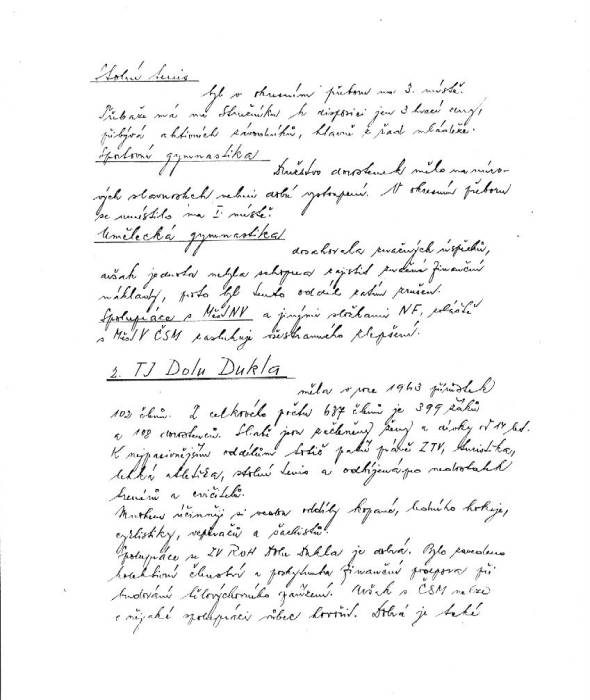 Stolní tenis
byl v okresním přeboru na 3. místě.
Třebaže má na Stružníku k disposici jen 3 hrací stoly,
přibývá aktivních závodníků, hlavně z řad mládeže.
Sportovní gymnastika
Družstvo dorostenek mělo na míro-
vých slavnostech velmi dobré vystoupení. V okresním přeboru
se umístilo na I. místě.
Umělecká gymnastika
dosahovala značných úspěchů,
avšak jednota nebyla schopna zajistit značné finanční
náklady, proto byl tento oddíl zatím zrušen.
Spolupráce s MěstNV a jinými složkami NF, zvláště
s MěstV ČSM zasluhuje všestranného zlepšení.
2. TJ Dolu Dukla
měla v roce 1963 přírůstek
102 členů. Z celkového počtu 687 členů je 399 žáků
a 108 dorostenců. Slabě jsou začleněny ženy a dívky od 14 let.
K nejpasivnějším oddílům totiž patří právě ZTV, turistika,
lehká atletika, stolní tenis a odbíjená po nedostatek
trenérů a cvičitelů.
Mnohem účinněji si vedou oddíly kopané, ledního hokeje,
cyklistiky, vzpěračů a šachistů.
Spolupráce se ZV ROH Dolu Dukla je dobrá. Bylo zavedeno
kolektivní členství a poskytnuta finanční podpora při
budování tělovýchovného zařízení. Však s ČSM nelze
o nějaké spolupráci vůbec hovořit. Dobrá je také